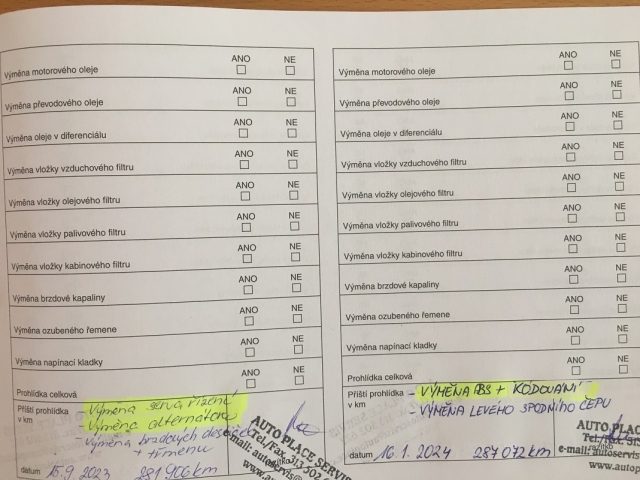 ANO NE
Výměna motorového oleje
ANO NE
Výměna převodového oleje
ANO NE
Výměna oleje v diferenciálu
ANO NE
Výměna vložky vzduchového filtru
ANO NE
Výměna vložky olejového filtru
ANO NE
Výměna vložky palivového filtru
ANO NE
Výměna vložky kabinového filtru
ANO NE
Výměna brzdové kapaliny
ANO NE
Výměna ozubeného řemene
ANO NE
Výměna napínací kladky
ANO NE
Prohlídka celková
Příští prohlídka
v km
- Výměna serva řízení
Výměna alternátoru
- Výměna brzdových
+ třmenu
datum 15.9. 2023 281 906 km
AUTO PLACE SERVIS
Tel./Fax. 313 502
e-mail: autoservis@
www.autop
ANO NE
Výměna motorového oleje
ANO NE
Výměna převodového oleje
ANO NE
Výměna oleje v diferenciálu
ANO NE
Výměna vložky vzduchového filtru
ANO NE
Výměna vložky olejového filtru
ANO NE
Výměna vložky palivového filtru
ANO NE
Výměna vložky kabinového filtru
ANO NE
Výměna brzdové kapaliny
ANO NE
Výměna ozubeného řemene
ANO NE
Výměna napínací kladky
ANO NE
Prohlídka celková
Příští prohlídka
v km
- VÝMĚNA ABS + KÓDOVÁNÍ
- VÝMĚNA LEVÉHO SPODNÍHO ČEPU
datum 16.1. 2024 287 072 km
AUTO PLAC
Tel./
e-mail: autoservis
www.autop